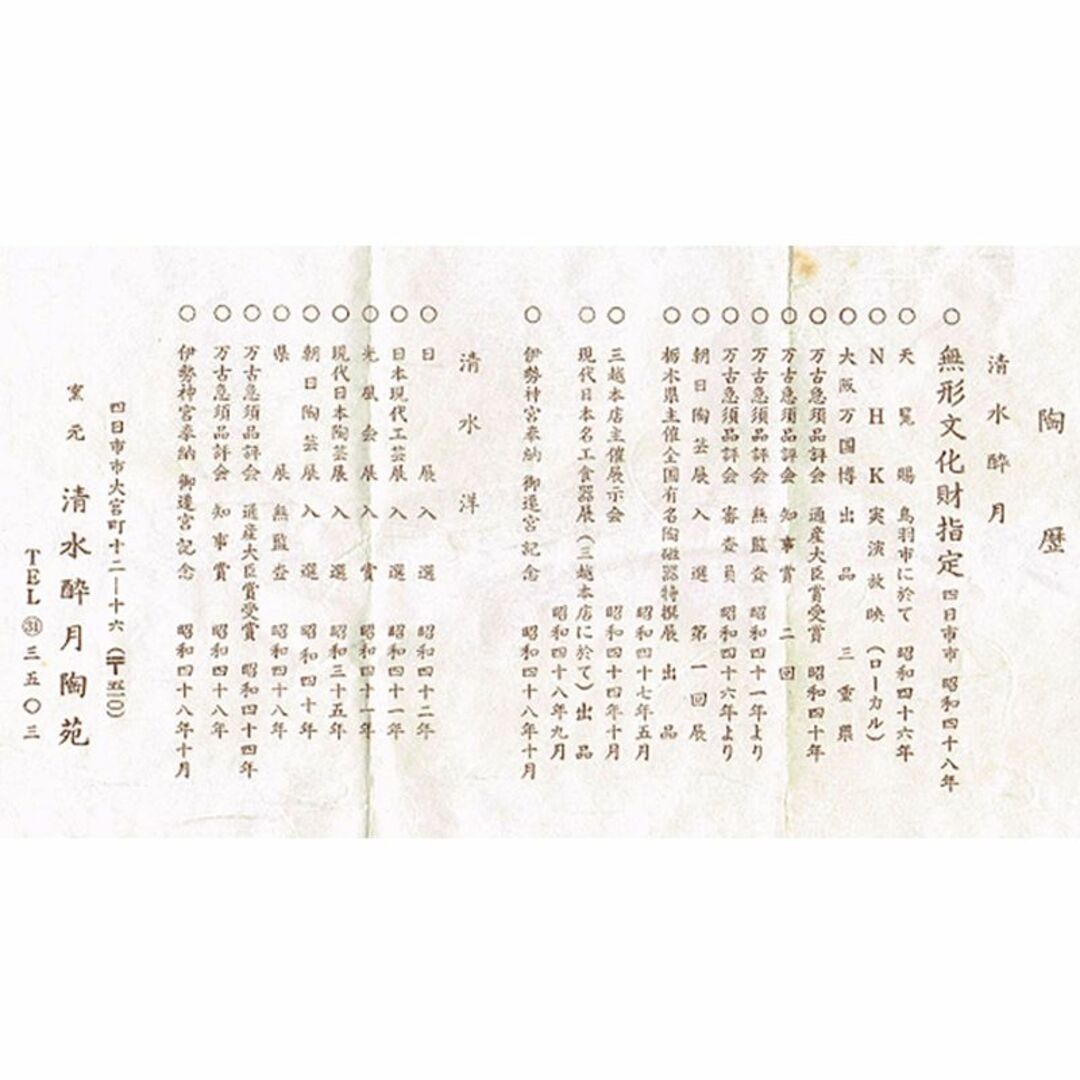 陶歴
清水酔月
○無形文化財指定 四日市市 昭和四十八年
○天覧賜 鳥羽市に於て 昭和四十六年
○NHK実演放映(ローカル)
○大阪万国博出品 三重県
○万古急須品評会 通産大臣賞受賞 昭和四十年
○万古急須品評会 知事賞 二回
○万古急須品評会 無監査 昭和四十一年より
○万古急須品評会 審査員 昭和四十六年より
○朝日陶芸展入選 第一回展
○栃木県主催全国有名陶磁器特撰展 出品
昭和四十七年五月
○三越本店主催展示会 昭和四十四年十月
○現代日本名工食器展(三越本店に於て)出品
昭和四十八年九月
○伊勢神宮奉納 御遷宮記念 昭和四十八年十月
清水洋
○日展 入選 昭和四十二年
○日本現代工芸展 入選 昭和四十一年
○光風会展 入賞 昭和四十一年
○現代日本陶芸展 入選 昭和三十五年
○朝日陶芸展 入選 昭和四十年
○県展 無監査 昭和四十八年
○万古急須品評会 通産大臣賞受賞 昭和四十四年
○万古急須品評会 知事賞 昭和四十八年
○伊勢神宮奉納 御遷宮記念 昭和四十八年十月
四日市市大宮町十二—十六(〒五一〇)
窯元 清水酔月陶苑
TEL㉛三五〇三